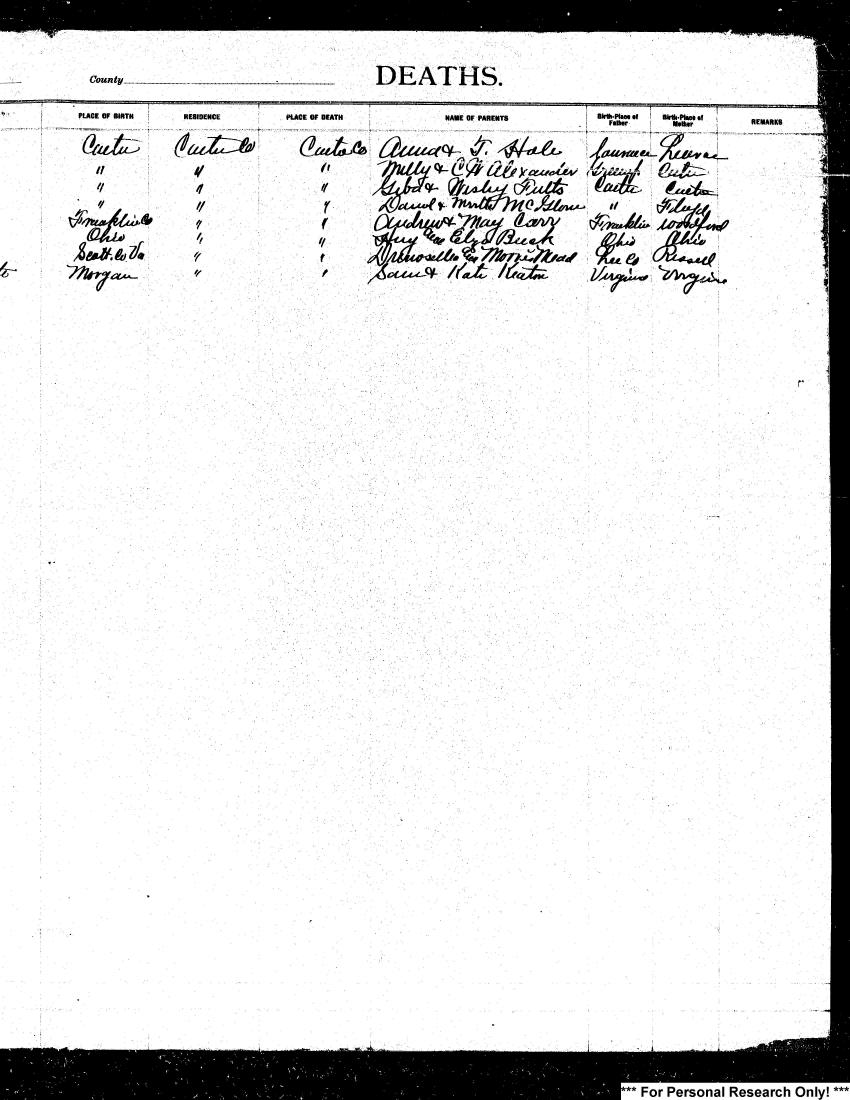 County DEATHS.
PLACE OF BIRTH RESIDENCE PLACE OF DEATH NAME OF PARENTS Birth-Place of Father Birth-Place of Mother REMARKS
Carter Carter Co Carter Co Anna & T. Hale Lawrence
" " " Milly & C W Alexander Carter
" " " & Wesley Fults Carter Carter
" " " Daniel & McGlone "
Franklin Co " " Andrew & May Carr Franklin Woodford
Ohio " " Buck Ohio Ohio
Scott. Co Va " " Morris Mead Lee Co Russell
to Morgan " " Sam & Kate Keaton Virginia Virginia
*** For Personal Research Only! ***